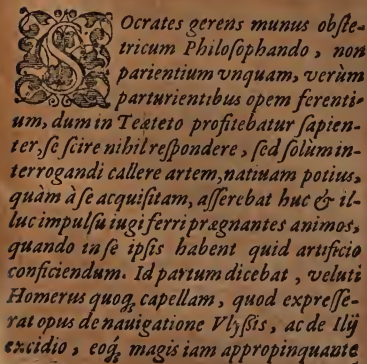 SOcrates gerens munus obſte-
tricum Philoſophando, non
parientium vnquam, verùm
parturientibus opem ferenti-
um, dum in Teæteto profitebatur ſapien-
ter, ſe ſcire nihil reſpondere, ſed ſolùm in-
terrogandi callere artem, natiuam potius,
quàm à ſe acquiſitam, aſſerebat huc & il-
luc impulſu iugi ferri prægnantes animos,
quando in ſe ipſis habent quid artificio
conficiendum. Id partum dicebat, veluti
Homerus quoq; capellam, quod expreſſe-
rat opus de nauigatione Vlyſſis, ac de Ilij
excidio, eoq́; magis iam appropinquante